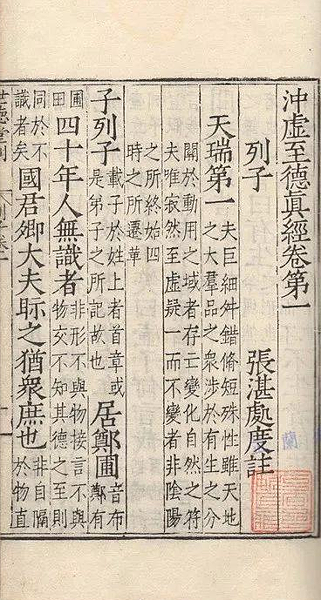 沖虛至德眞經卷第一
列子　張湛處度註
天瑞第一
夫巨細舛錯脩短殊性雖天地
之大羣品之衆涉於有生之分
關於動用之域者存亡變化自然之符
夫唯寂然至虛凝一而不變者非陰陽
之所終始四
時之所遷革
子列子
載子於姓上者首章或
是弟子之所記故也
居鄭圃
音布
鄭有
圃
田
四十年人無識者
非形不與物接言不與
物交不知其德之至則
同於不
識者矣
國君卿大夫眎之猶衆庶也
非自隔
於物直